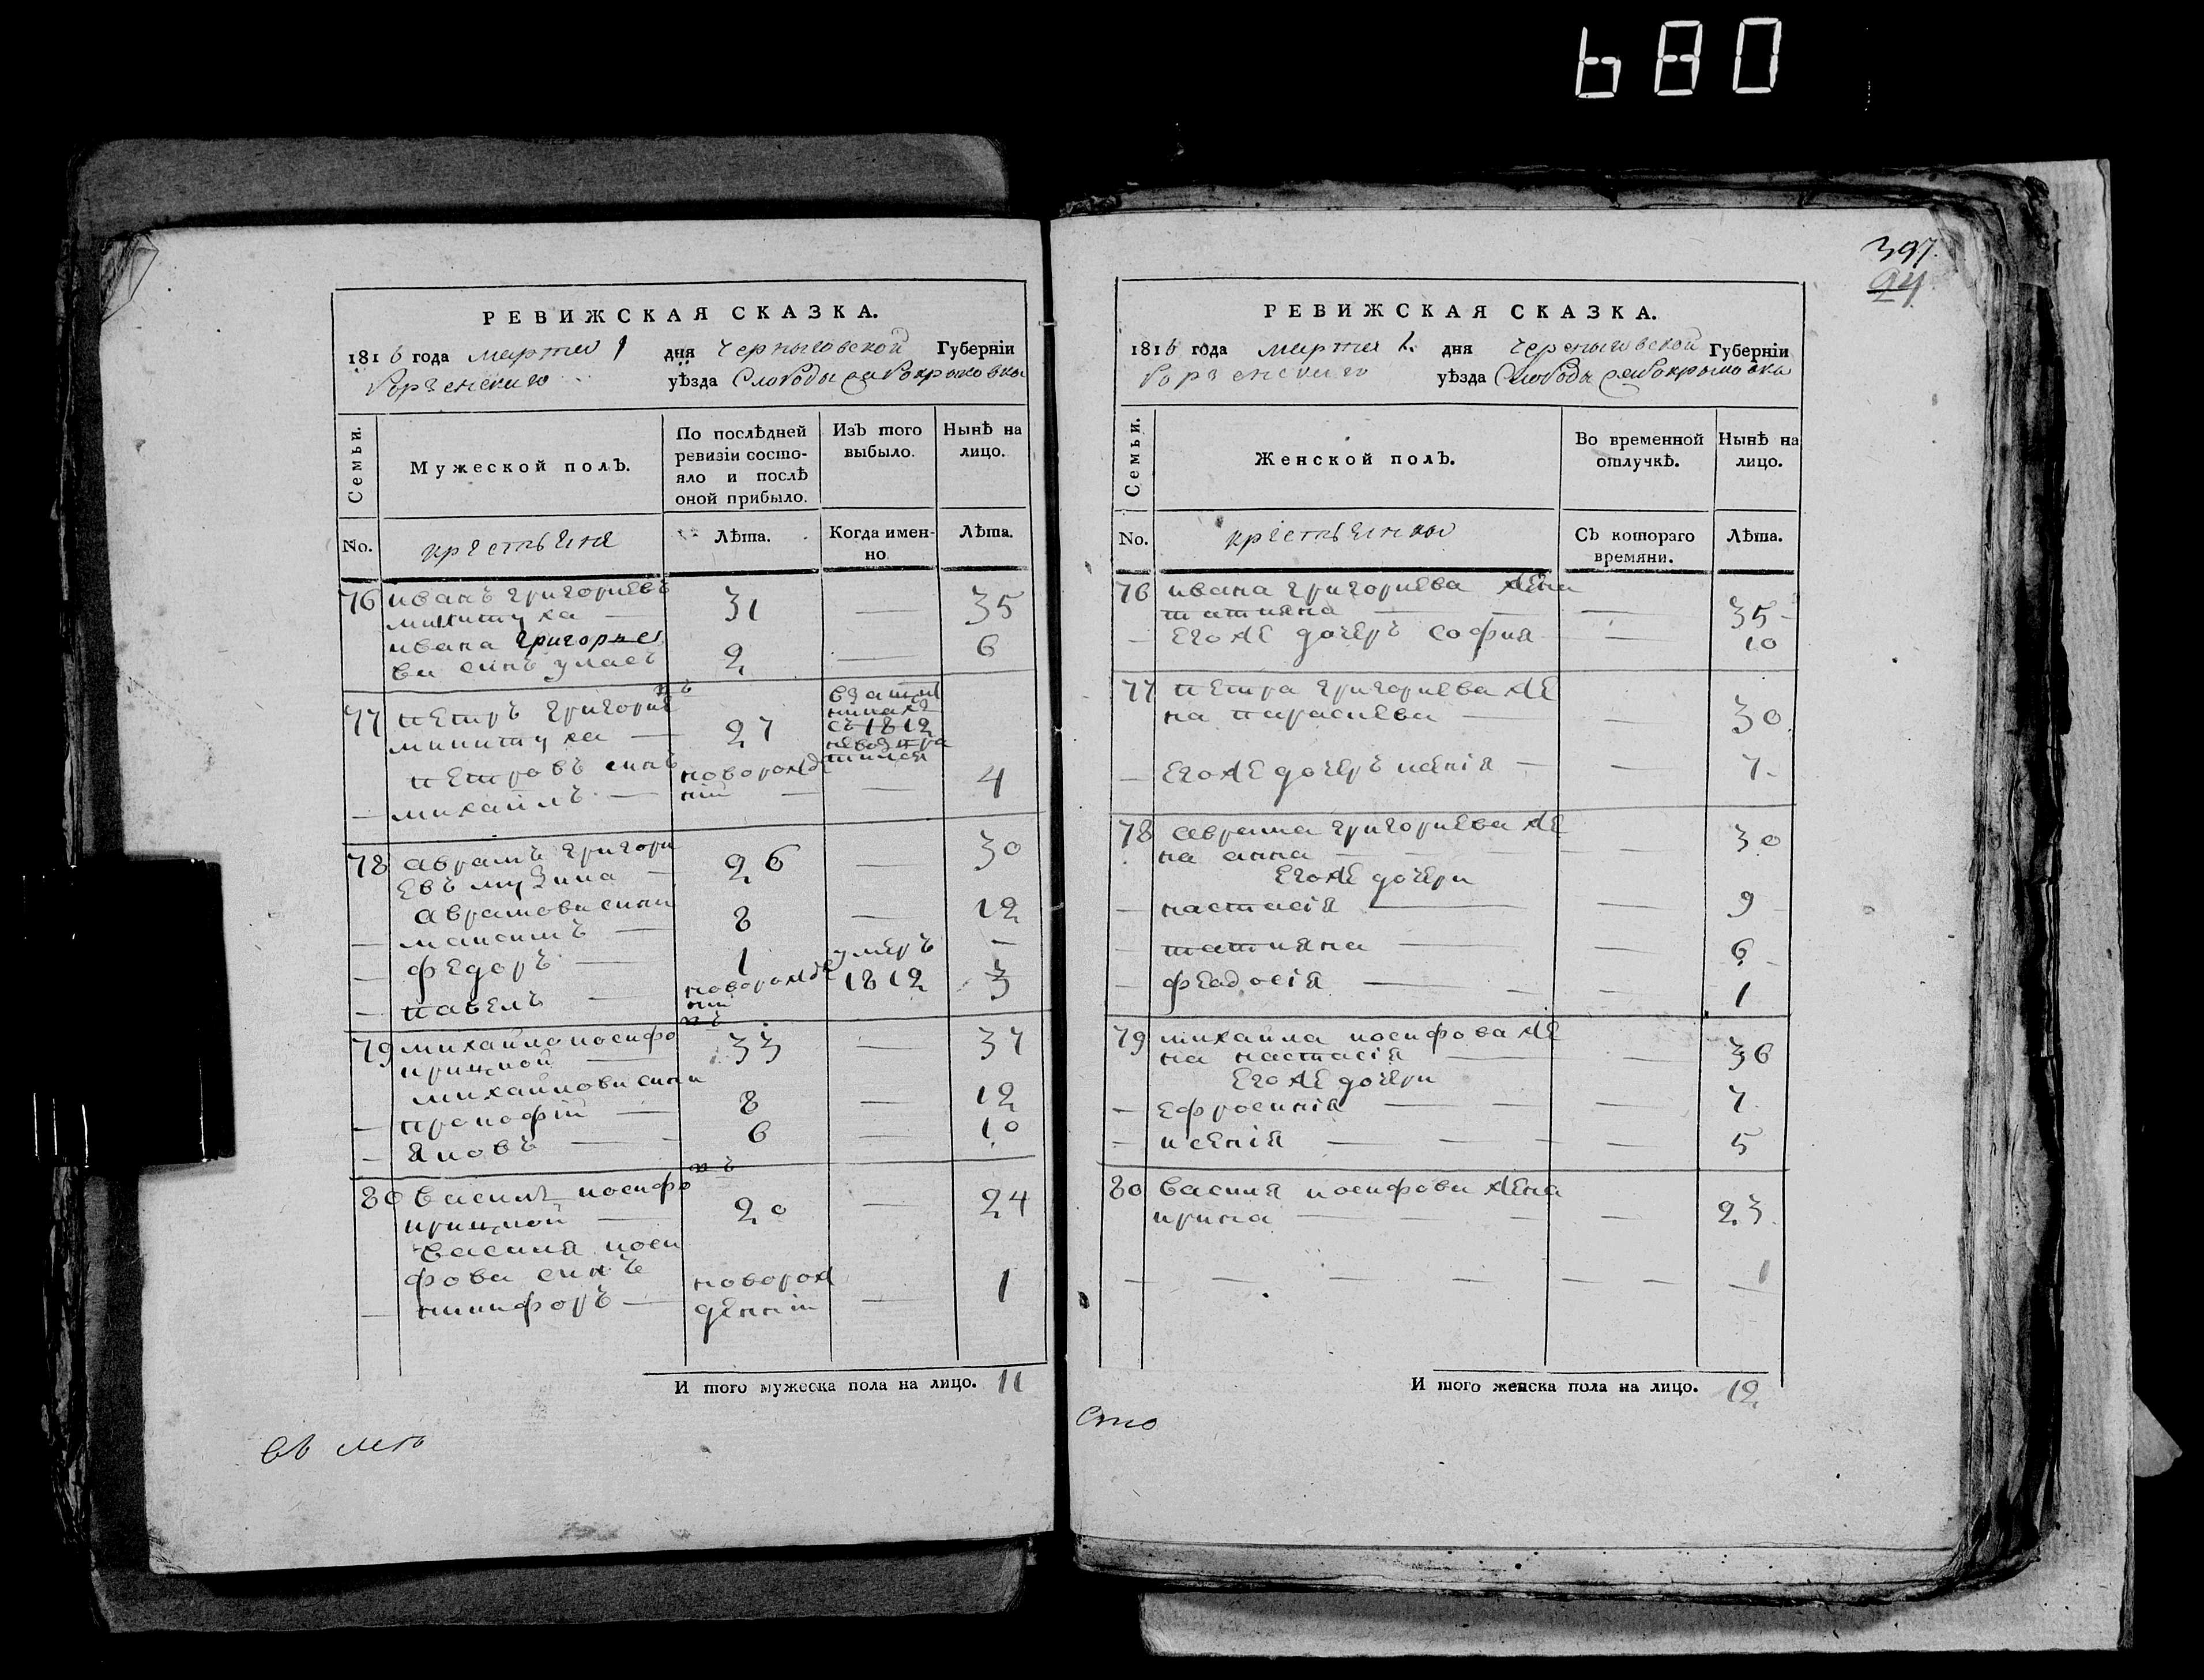 680
РЕВИЖСКАЯ СКАЗКА.
1816 года марта 1 дня Черныговской Губерніи
Борзенскиго уѣзда Слободы
Семьи.
Мужеской полъ.
По послѣдней ревизіи состо-
яло и послѣ
оной прибыло.
Изъ того
выбыло.
Нынѣ на
лицо.
No.
крестьяня
Лѣта.
Когда имен-
но
Лѣта.
76 иванъ григориевъ
31 — 35
ивана григорие
ва синъ уласъ 2 — 6
77 петръ григориевъ
27
съ 1812
петровъ синъ новорожде
— михайлъ — ній — — 4
78 аврамъ григори
евъ музика — 26 — 30
аврамови сини
— максимъ — 8 — 12
— федоръ — 1 умеръ —
— павелъ — новорожде 1812 3
ній
79 михайло иосифо
въ
крицкой — 33 — 37
михайлови сини
— прокофій — 8 — 12
— яковъ — 6 — 10
80 василь иосифо
въ
крицкой — 20 — 24
василя иоси
фова синъ новорож
— никифоръ — денній — 1
И того мужеска пола на лицо. 11
397.
94
РЕВИЖСКАЯ СКАЗКА.
1816 года марта 1. дня Черныговской Губерніи
Борзенскиго уѣзда Слободы
Семьи.
Женской полъ.
Во временной
отлучкѣ.
Нынѣ на
лицо.
No.
крестьянки
Съ котораго
времяни.
Лѣта.
76 ивана григориева жена
татияна — — — 35
— его же дочеръ софия — 10
77 петра григориева же
на параскева — — 30
— его же дочеръ ксенія — — 7
78 аврама григориева же
на анна — — — — 30
его же дочери
— настасія — — 9
— татияна — — 6
— феодосія — — — 1
79 михайла иосифова же
на настасія — — 36
его же дочери
— ефросинія — — — 7
— ксенія — — — — 5
80 василя иосифова жена
ирина — — — — 23
И того женска пола на лицо. 12